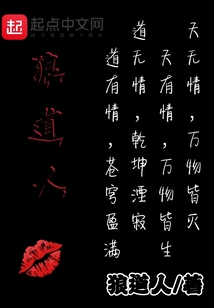 起
起点中文网
天无情,万物皆灭
天有情,万物皆生
道无情,乾坤湮寂
道有情,苍穹盈满
道人
狼道人/著